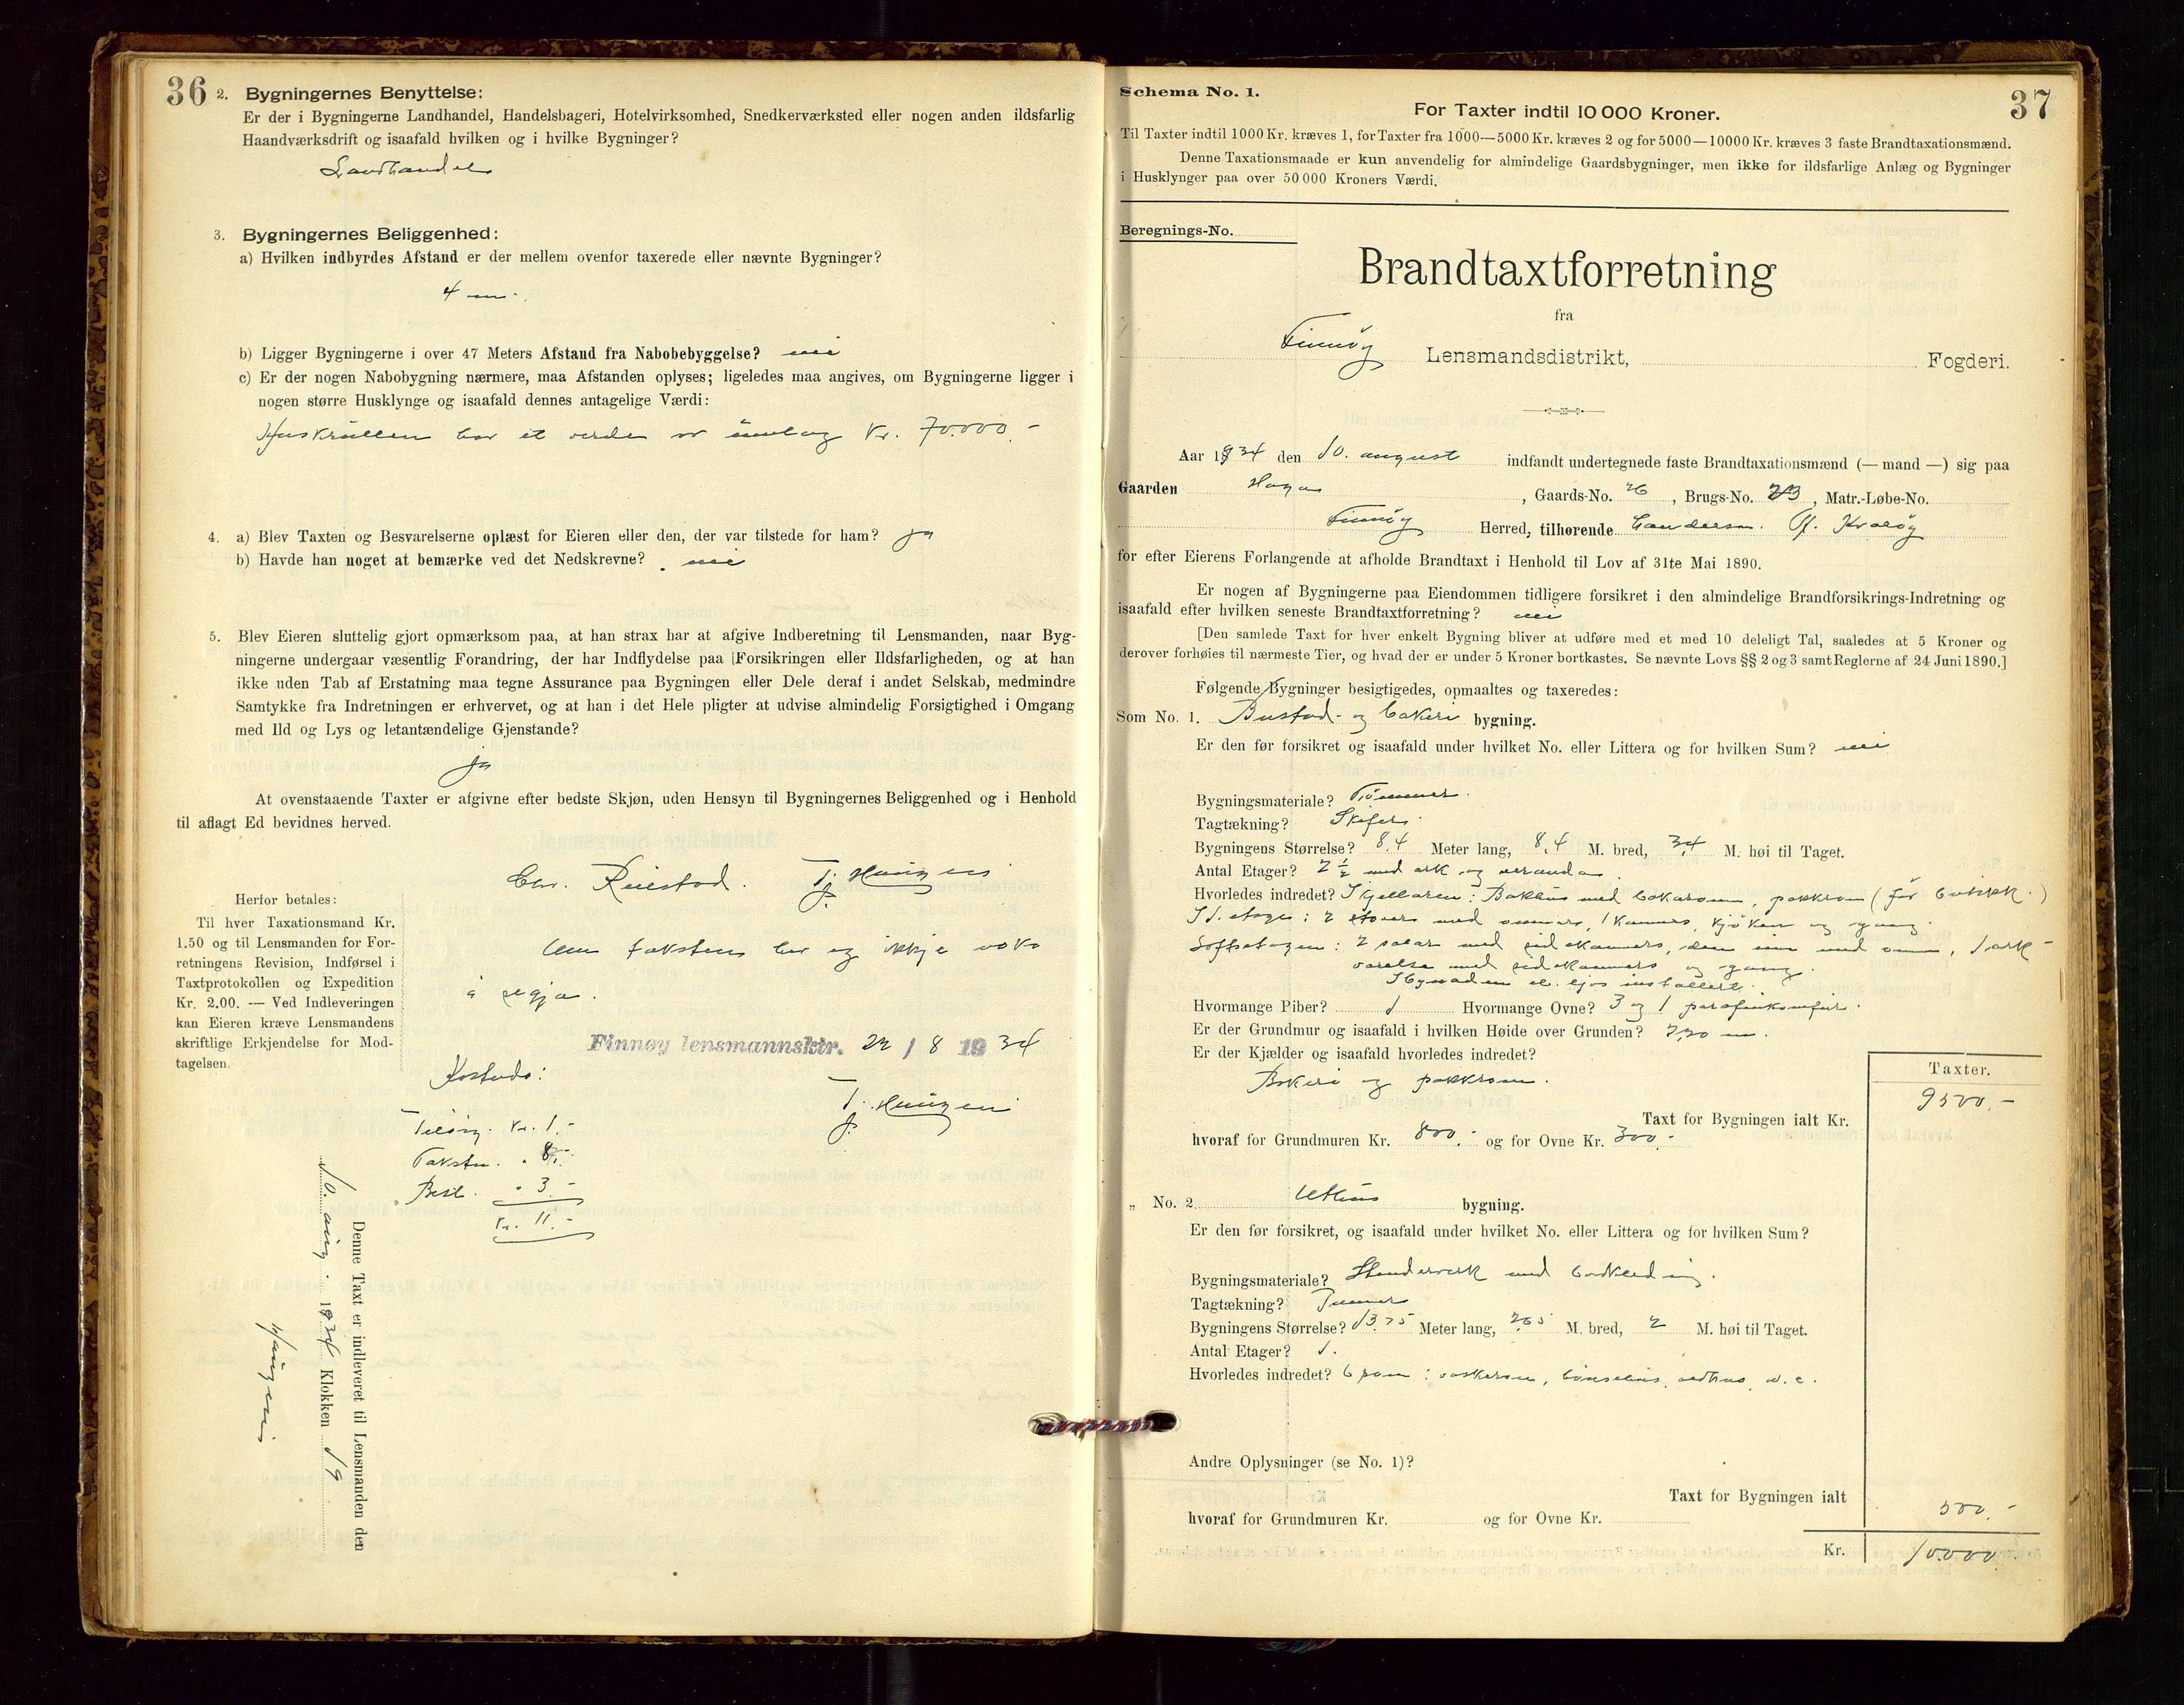 36
2. Bygningernes Benyttelse:
Er der i Bygningerne Landhandel, Handelsbageri, Hotelvirksomhed, Snedkerværksted eller nogen anden ildsfarlig
Haandværksdrift og isaafald hvilken og i hvilke Bygninger?
Landhandel
3. Bygningernes Beliggenhed:
a) Hvilken indbyrdes Afstand er der mellem ovenfor taxerede eller nævnte Bygninger?
4 m.
b) Ligger Bygningerne i over 47 Meters Afstand fra Nabobebyggelse? nei
c) Er der nogen Nabobygning nærmere, maa Afstanden oplyses; ligeledes maa angives, om Bygningerne ligger i
nogen større Husklynge og isaafald dennes antagelige Værdi:
Huskrullen har et verde av umlag Kr. 70.000.-
4. a) Blev Taxten og Besvarelserne oplæst for Eieren eller den, der var tilstede for ham? ja
b) Havde han noget at bemærke ved det Nedskrevne? nei
5. Blev Eieren sluttelig gjort opmærksom paa, at han strax har at afgive Indberetning til Lensmanden, naar Byg-
ningerne undergaar væsentlig Forandring, der har Indflydelse paa Forsikringen eller Ildsfarligheden, og at han
ikke uden Tab af Erstatning maa tegne Assurance paa Bygningen eller Dele deraf i andet Selskab, medmindre
Samtykke fra Indretningen er erhvervet, og at han i det Hele pligter at udvise almindelig Forsigtighed i Omgang
med Ild og Lys og letantændelige Gjenstande?
Ja
At ovenstaaende Taxter er afgivne efter bedste Skjøn, uden Hensyn til Bygningernes Beliggenhed og i Henhold
til aflagt Ed bevidnes herved.
Chr. Reilstad. T. Haugen
Herfor betales:
Til hver Taxationsmand Kr.
1.50 og til Lensmanden for For-
retningens Revision, Indførsel i
Taxtprotokollen og Expedition
Kr. 2.00. — Ved Indleveringen
kan Eieren kræve Lensmandens
skriftlige Erkjendelse for Mod-
tagelsen.
Um taksten har eg ikkje noko
å segja.
Finnøy lensmannsktr. 22 / 8 1934
T. Haugen
Kostnad:
Tillsyn. Kr. 1.-
Takstm. " 8.-
Best. " 3.-
Kr. 11.-
Denne Taxt er indleveret til Lensmanden den
10. aug. 1934 Klokken 19
Haugen
37
Schema No. 1.
For Taxter indtil 10 000 Kroner.
Til Taxter indtil 1000 Kr. kræves 1, for Taxter fra 1000—5000 Kr. kræves 2 og for 5000—10000 Kr. kræves 3 faste Brandtaxationsmænd.
Denne Taxationsmaade er kun anvendelig for almindelige Gaardsbygninger, men ikke for ildsfarlige Anlæg og Bygninger
i Husklynger paa over 50 000 Kroners Værdi.
Beregnings-No.
Brandtaxtforretning
fra
Finnøy Lensmandsdistrikt, Fogderi.
Aar 1934 den 10. august indfandt undertegnede faste Brandtaxationsmænd (— mand —) sig paa
Gaarden , Gaards-No. 26, Brugs-No. 23, Matr.-Løbe-No.
Finnøy Herred, tilhørende
for efter Eierens Forlangende at afholde Brandtaxt i Henhold til Lov af 31te Mai 1890.
Er nogen af Bygningerne paa Eiendommen tidligere forsikret i den almindelige Brandforsikrings-Indretning og
isaafald efter hvilken seneste Brandtaxtforretning? nei
[Den samlede Taxt for hver enkelt Bygning bliver at udføre med et med 10 deleligt Tal, saaledes at 5 Kroner og
derover forhøies til nærmeste Tier, og hvad der er under 5 Kroner bortkastes. Se nævnte Lovs §§ 2 og 3 samt Reglerne af 24 Juni 1890.]
Følgende Bygninger besigtigedes, opmaaltes og taxeredes:
Som No. 1. Bustad- og bakeri bygning.
Er den før forsikret og isaafald under hvilket No. eller Littera og for hvilken Sum? nei
Bygningsmateriale? Tømmer.
Tagtækning? Skifer.
Bygningens Størrelse? 8,4 Meter lang, 8,4 M. bred, 3,4 M. høi til Taget.
Antal Etager? 2 ½ med ark og veranda.
Hvorledes indredet? I kjellaren: Bakhus med bakaromn, pakkrom (før butikk.)
I 1. etasje: 2 stover med omner, 1 kammers, kjøken og gang
Loftsetagen: 2 salar med sidekammers, den eine med omn, 1 ark-
værelse med sidekammers og gang.
I bygnaden el. ljos installert.
Hvormange Piber? 1 Hvormange Ovne? 3 og 1 parafinkomfyr.
Er der Grundmur og isaafald i hvilken Høide over Grunden? 2,20 m.
Er der Kjælder og isaafald hvorledes indredet?
Bakeri og pakkrom.
Taxter.
Taxt for Bygningen ialt Kr. 9500.-
hvoraf for Grundmuren Kr. 800.- og for Ovne Kr. 300.-
„ No. 2 Uthus bygning.
Er den før forsikret, og isaafald under hvilket No. eller Littera og for hvilken Sum?
Bygningsmateriale? Stenderverk med bordkledning.
Tagtækning?
Bygningens Størrelse? 13,75 Meter lang, 2,65 M. bred, 2 M. høi til Taget.
Antal Etager? 1.
Hvorledes indredet? 6 rom: vaskerom, hønsehus, vedhus, w. c.
Andre Oplysninger (se No. 1)?
Taxt for Bygningen ialt 500.-
hvoraf for Grundmuren Kr. og for Ovne Kr.
Kr. 10.000.